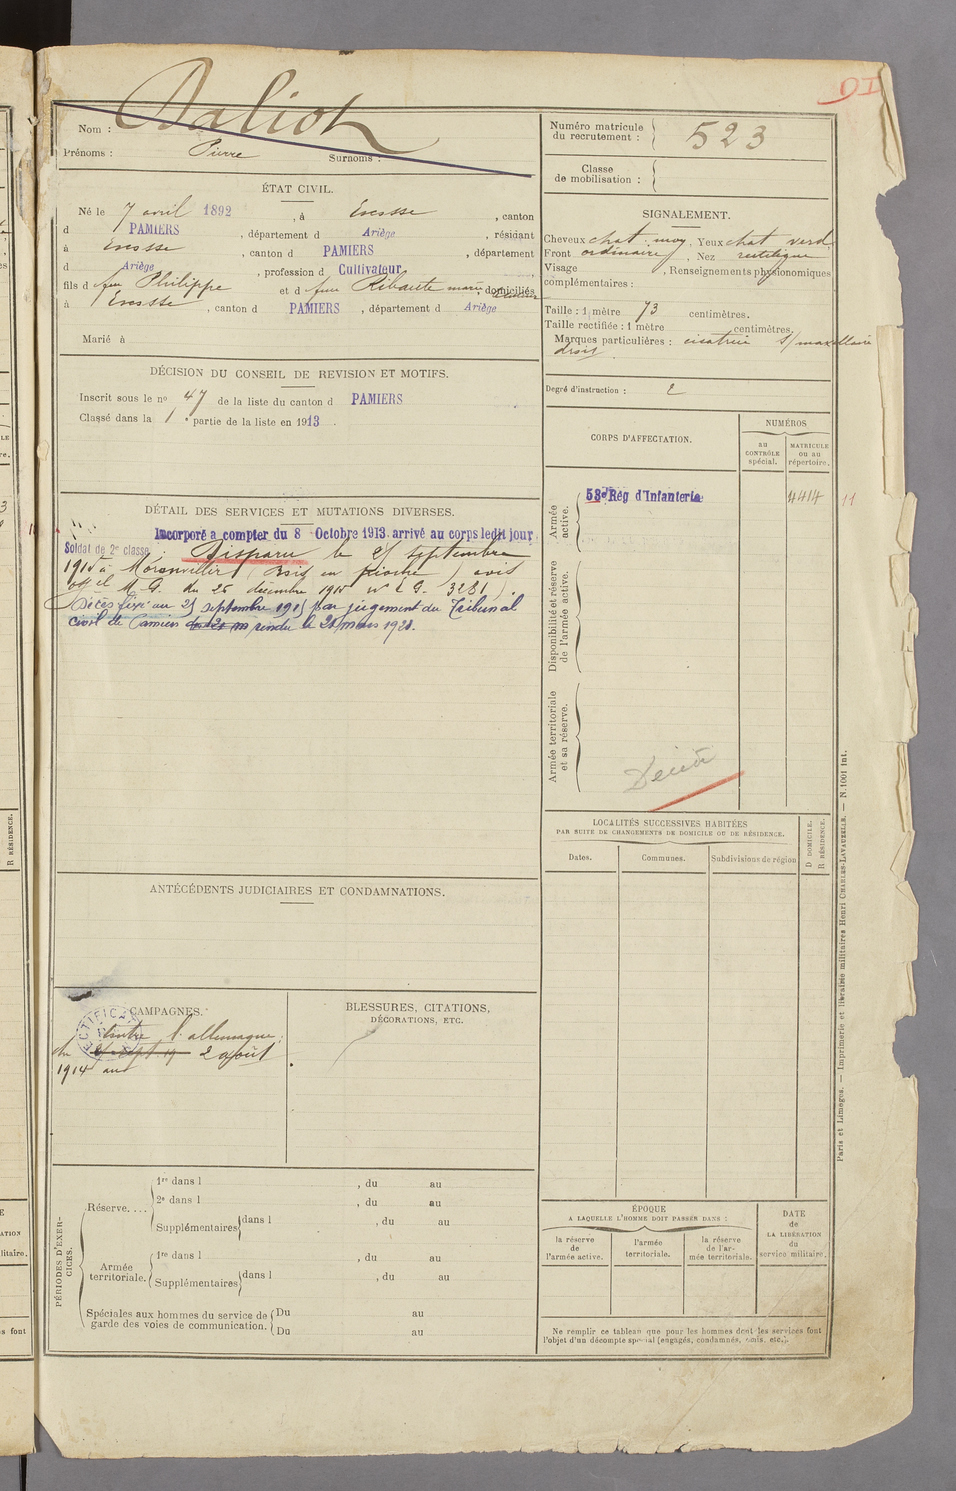 9I
Nom : Daliot
Prénoms : Pierre Surnoms :
ÉTAT CIVIL.
Né le 7 avril 1892, à Escosse, canton
d PAMIERS, département d Ariège, résidant
à Escosse, canton d PAMIERS, département
d Ariège, profession d Cultivateur,
fils d feu Philippe et d feue Ribaute Marie, domiciliés
à Escosse, canton d PAMIERS, département d Ariège
Marié à
DÉCISION DU CONSEIL DE REVISION ET MOTIFS.
Inscrit sous le nº 47 de la liste du canton d PAMIERS
Classé dans la 1e partie de la liste en 1913.
DÉTAIL DES SERVICES ET MUTATIONS DIVERSES.
Incorporé a compter du 8 Octobre 1913 arrivé au corps ledit jour
Soldat de 2e classe. Disparu le 25 septembre
1915 à (Bois en pioche) avis
off el M. G. du 26 décembre 1915 nº L G. 3281).
Décès fixé au 25 septembre 1915 par jugement du Tribunal
civil de Pamiers rendu le 21 mars 1921.
ANTÉCÉDENTS JUDICIAIRES ET CONDAMNATIONS.
CAMPAGNES.
Contre l'allemagne,
du 2 août
1914 au
BLESSURES, CITATIONS,
DÉCORATIONS, ETC.
PÉRIODES D'EXERCICES.
Réserve....
1re dans l , du au
2e dans l , du au
Supplémentaires dans l , du au
Armée territoriale.
1re dans l , du au
Supplémentaires dans l , du au
Spéciales aux hommes du service de garde des voies de communication.
Du au
Du au
Numéro matricule du recrutement : 523
Classe de mobilisation :
SIGNALEMENT.
Cheveux chat. moy, Yeux chat verd
Front ordinaire, Nez rectiligne
Visage , Renseignements physionomiques
complémentaires :
Taille : 1 mètre 73 centimètres.
Taille rectifiée : 1 mètre centimètres.
Marques particulières : cicatrice s/ maxillaire
droit.
Degré d'instruction : 2
CORPS D'AFFECTATION.
NUMÉROS
au CONTRÔLE spécial.
MATRICULE ou au répertoire.
Armée active.
53e Rég d'Infanterie
4414
11
Disponibilité et réserve de l'armée active.
Armée territoriale et sa réserve.
Décédé
LOCALITÉS SUCCESSIVES HABITÉES
PAR SUITE DE CHANGEMENTS DE DOMICILE OU DE RÉSIDENCE.
D DOMICILE.
R RÉSIDENCE.
Dates.
Communes.
Subdivisions de région
ÉPOQUE
A LAQUELLE L'HOMME DOIT PASSER DANS :
la réserve de l'armée active.
l'armée territoriale.
la réserve de l'armée territoriale.
DATE de LA LIBÉRATION du service militaire.
Ne remplir ce tableau que pour les hommes dont les services font
l'objet d'un décompte spécial (engagés, condamnés, omis, etc.).
Paris et Limoges. — Imprimerie et librairie militaires Henri CHARLES-LAVAUZELLE. — N. 1001 int.
R RÉSIDENCE.